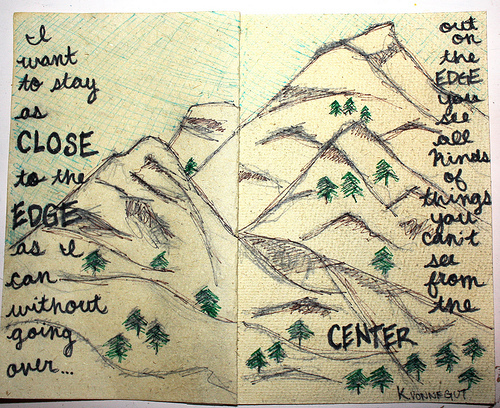 I
want
to stay
as
CLOSE
to the
EDGE
as I
can
without
going
over...
out
on
the
EDGE
you
see
all
kinds
of
things
you
can't
see
from
the
CENTER
K. VONNEGUT